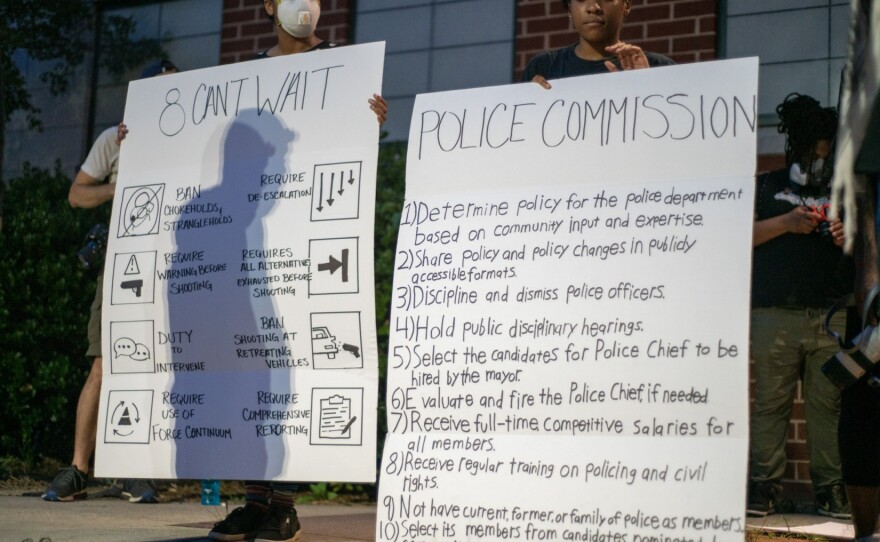 8 CANT WAIT
BAN
CHOKEHOLDS,
STRANGLEHOLDS
REQUIRE
DE-ESCALATION
REQUIRE
WARNING BEFORE
SHOOTING
REQUIRES
ALL ALTERNATIVE
EXHAUSTED BEFORE
SHOOTING
DUTY
TO
INTERVENE
BAN
SHOOTING AT
RETREATING
VEHICLES
REQUIRE
USE OF
FORCE CONTINUUM
REQUIRE
COMPREHENSIVE
REPORTING
POLICE COMMISSION
1) Determine policy for the police department
based on community input and expertise.
2) Share policy and policy changes in publicly
accessible formats.
3) Discipline and dismiss police officers.
4) Hold public disciplinary hearings.
5) Select the candidates for Police Chief to be
hired by the mayor.
6) Evaluate and fire the Police Chief, if needed
7) Receive full-time, competitive salaries for
all members.
8) Receive regular training on policing and civil
rights.
9) Not have current, former, or family of police as members.
10) Select its members from candidates nominated